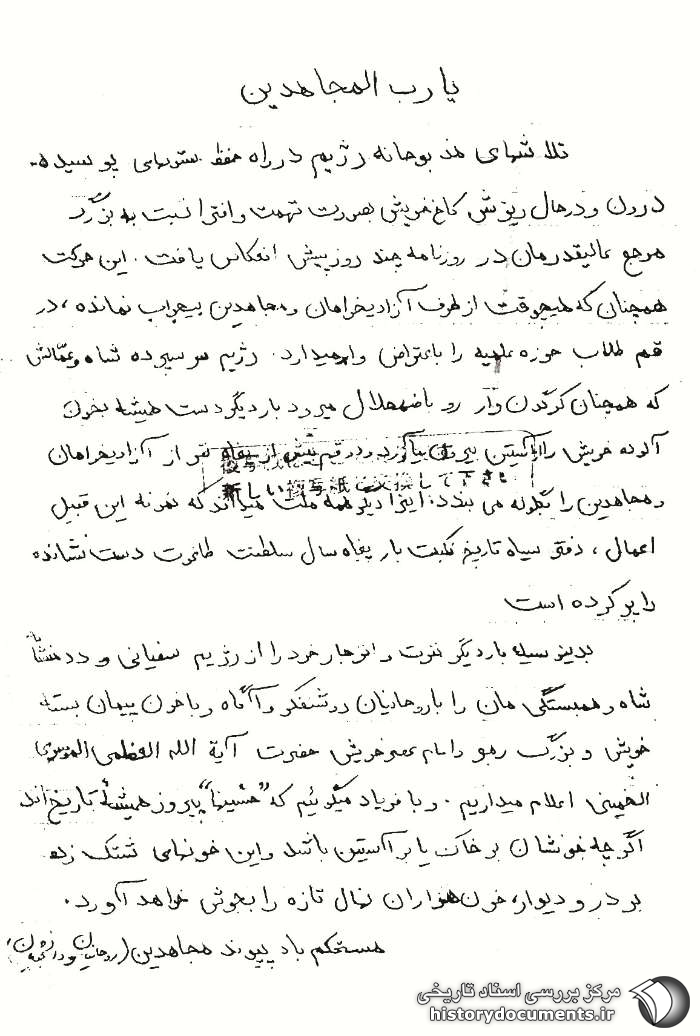 یا رب المجاهدین
تلاشهای مذبوحانه رژیم در راه حفظ ستونهای پوسیده
درون و در حال ریزش کاخ خویش بصورت تهمت و افترا نسبت به بزرگ
مرجع عالیقدرمان در روزنامه چند روز پیش انعکاس یافت. این حرکت
همچنان که هیچوقت از طرف آزادیخواهان و مجاهدین بیجواب نمانده، در
قم طلاب حوزه علمیه را باعتراض وامیدارد. رژیم سرسپرده شاه و عمّالش
که همچنان کرگدن وار رو باضمحلال میرود بار دیگر دست همیشه بخون
آلوده خویش را از آستین بیرون میآورد و در قم بیش از پنجاه نفر از آزادیخواهان
و مجاهدین را بگلوله می بندد. اینرا دیگر همه ملت میداند که نمونه این قبیل
اعمال، دفتر سیاه تاریخ نکبت بار پنجاه سال سلطنت طاغوت دست نشانده
را پر کرده است
بدینوسیله بار دیگر نفرت و انزجار خود را از رژیم سفیانی و ددمنشانه
شاه و همبستگی مان را با روحانیان روشنفکر و آگاه و با خون پیمان بسته
خویش و بزرگ رهبر و امام عصر خویش حضرت آیة الله العظمی الموسوی
الخمینی اعلام میداریم. و با فریاد میگوئیم که "حسینیها" پیروز همیشهٔ تاریخ اند
اگر چه خونشان بر خاک یا بر آستین باشد و این خونهای شتک زده
بر در و دیوار، خون هزاران نهال تازه را بجوش خواهد آورد.
مستحکم باد پیوند مجاهدین (روحانیان و دانشجویان)
مرکز بررسی اسناد تاریخی
historydocuments.ir